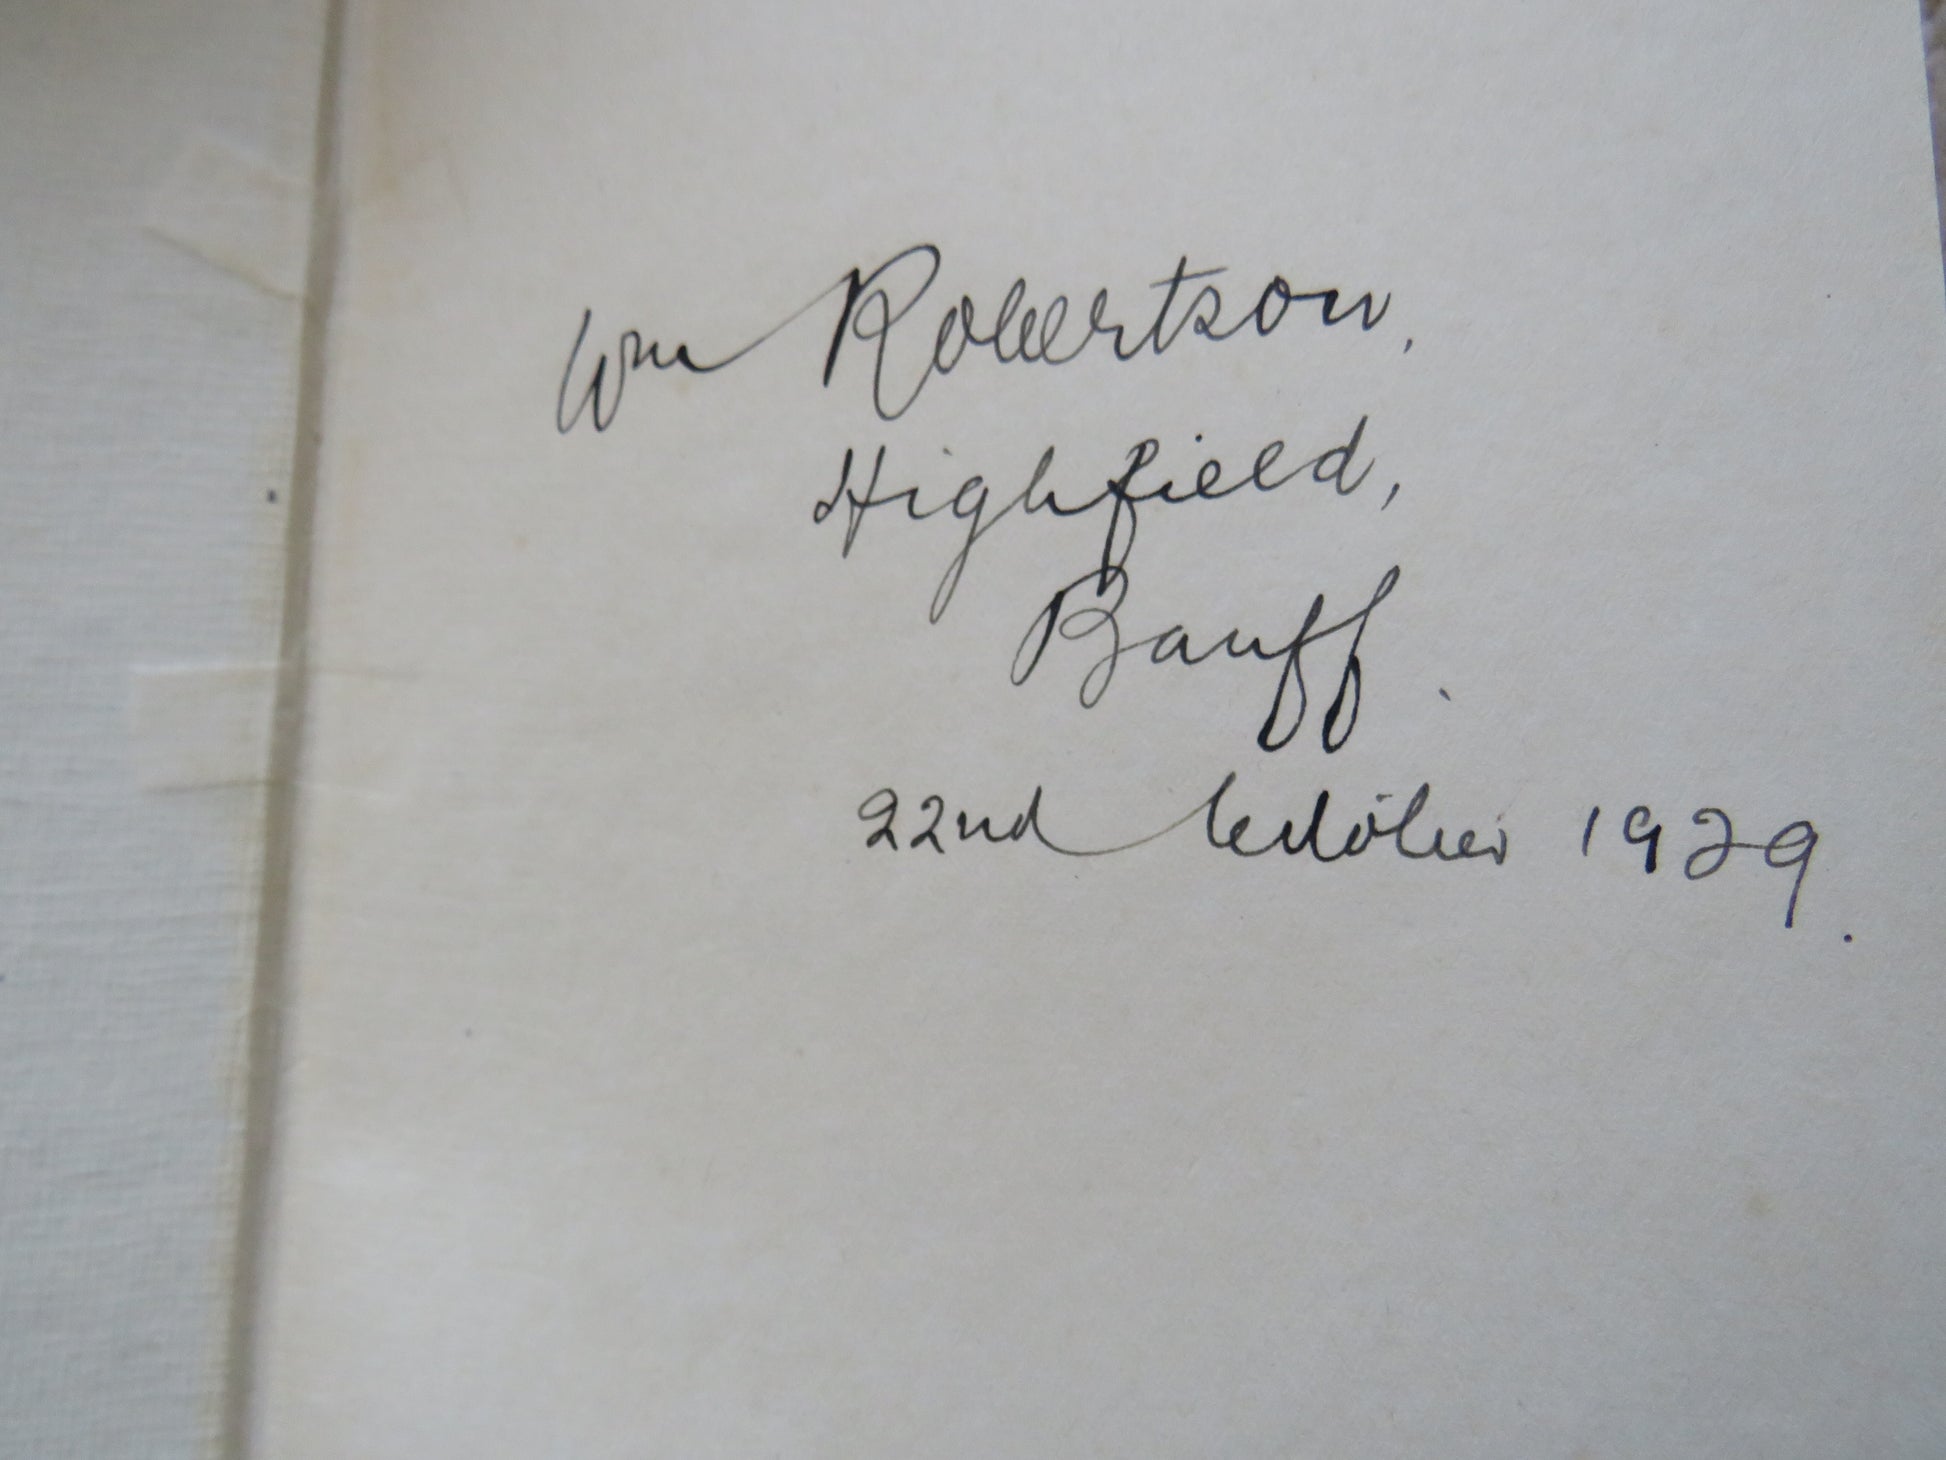 Wm Robertson,
Highfield,
Banff.
22nd October 1929.